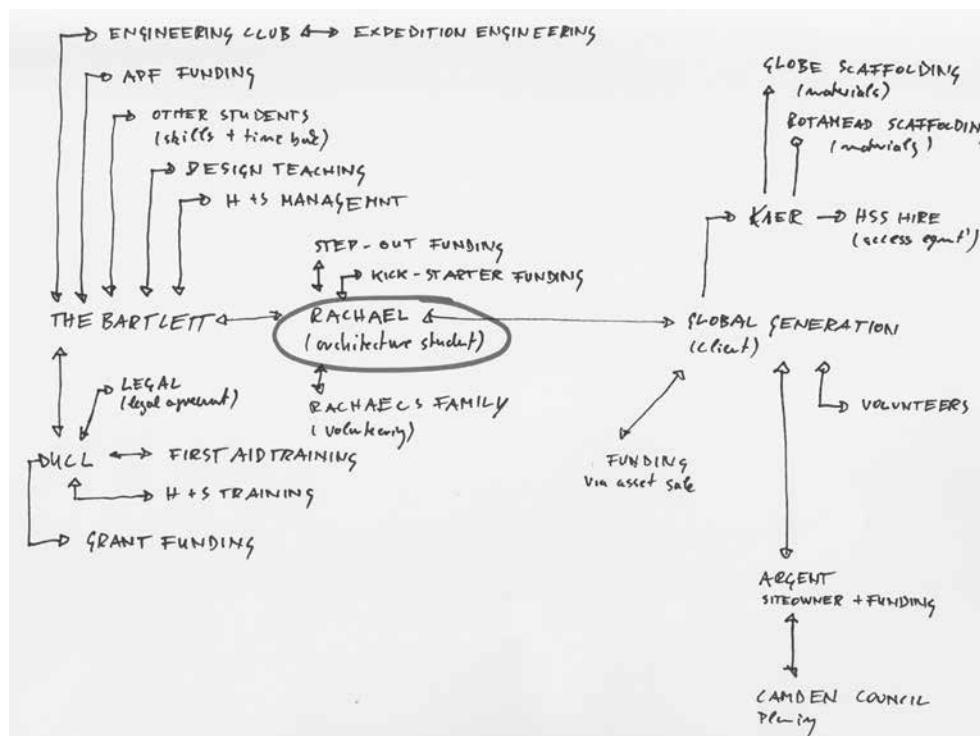 ENGINEERING CLUB EXPEDITION ENGINEERING
APF FUNDING
OTHER STUDENTS
(skills + time
DESIGN TEACHING
H + S MANAGEMNT
STEP-OUT FUNDING
KICK-STARTER FUNDING
THE BARTLETT
RACHAEL
(architecture student)
RACHAELS FAMILY
(volunteering)
LEGAL
(legal agreement)
UCL
FIRST AID TRAINING
H + S TRAINING
GRANT FUNDING
GLOBE SCAFFOLDING
(materials)
SCAFFOLDING
(materials)
KIER
HSS HIRE
(access
GLOBAL GENERATION
(client)
VOLUNTEERS
FUNDING
via asset sale
ARGENT
SITEOWNER + FUNDING
CAMDEN COUNCIL